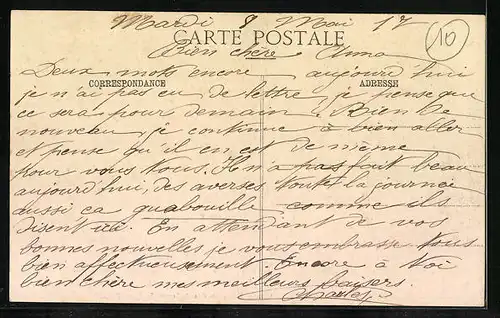 Mardi 8 Mai 17
10
CARTE POSTALE
Bien chère Anna
Deux mots encore aujourd'hui
CORRESPONDANCE
ADRESSE
je n'ai pas eu de lettre je pense que
ce sera pour demain. Rien de
nouveau, je continue à bien aller
et pense qu'il en est de même
pour vous tous. Il n'a pas fait beau
aujourd'hui, des averses toute la journée
aussi ça quabouille comme ils
disent ici. En attendant de vos
bonnes nouvelles je vous embrasse tous
bien affectueusement. Encore à toi
bien chère mes meilleurs baisers.
Charles